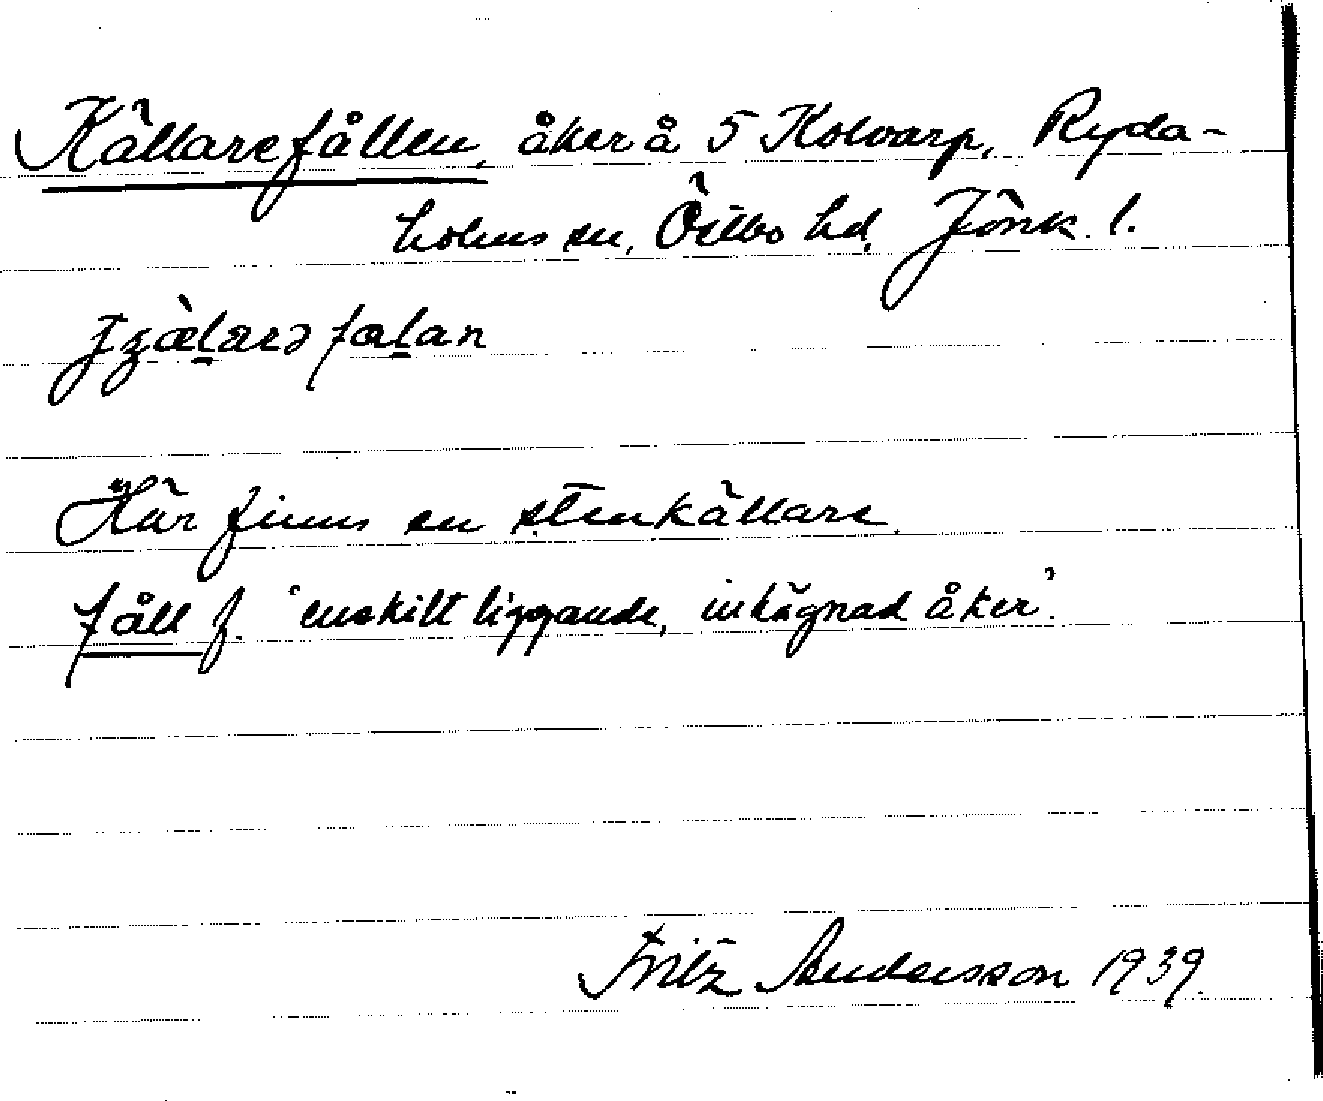 Källarefållen, åker å 5 Kolvarp, Ryda-
holms sn, Östbo hd, Jönk. l.
Här finns en stenkällare.
fåll f. 'enskilt liggande, inhägnad åker'.
Fritz Andersson 1939.